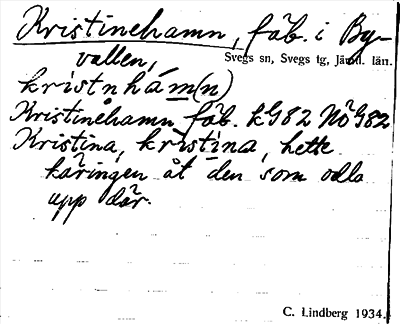 Kristinehamn, fäb. i By-
vallen,
Svegs sn, Svegs tg, Jämtl. län.
kristnhám(n)
Kristinehamn fäb. kG82 NöG82
Kristina, kristina, hette
käringen åt den som odla
upp där.
C. Lindberg 1934.